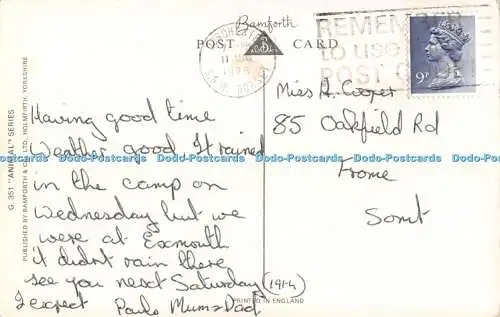 Bamforth
POST CARD
REMEMBER
to use
POST
11 AUG
1979
9P
G. 351 "ANIMAL" SERIES
PUBLISHED BY BAMFORTH & CO. LTD. HOLMFIRTH, YORKSHIRE.
Having good time
Weather good It rained
in the camp on
Wednesday but we
were at Exmouth
it didnt rain there
see you next Saturday (1914)
I expect Pauls Mum & Dad
Miss A. Cooper
85 Oakfield Rd
Frome
Somt
PRINTED IN ENGLAND
Dodo-Postcards Dodo-Postcards Dodo-Postcards Dodo-Postcards Dodo-Postcards Dodo-Postcards